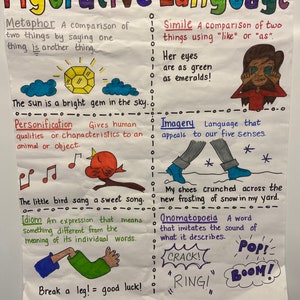 Figurative Language
Metaphor A comparison of
two things by saying one
thing is another thing.
The sun is a bright gem in the sky.
Simile A comparison of two
things using "like" or "as".
Her eyes
are as green
as emeralds!
Personification Gives human
qualities or characteristics to an
animal or object.
The little bird sang a sweet song.
Imagery Language that
appeals to our five senses.
My shoes crunched across the
new frosting of snow in my yard.
Idiom An expression that means
something different from the
meaning of its individual words.
Break a leg! = good luck!
Onomatopoeia A word
that imitates the sound of
what it describes.
CRACK!
POP!
"RING!"
BOOM!